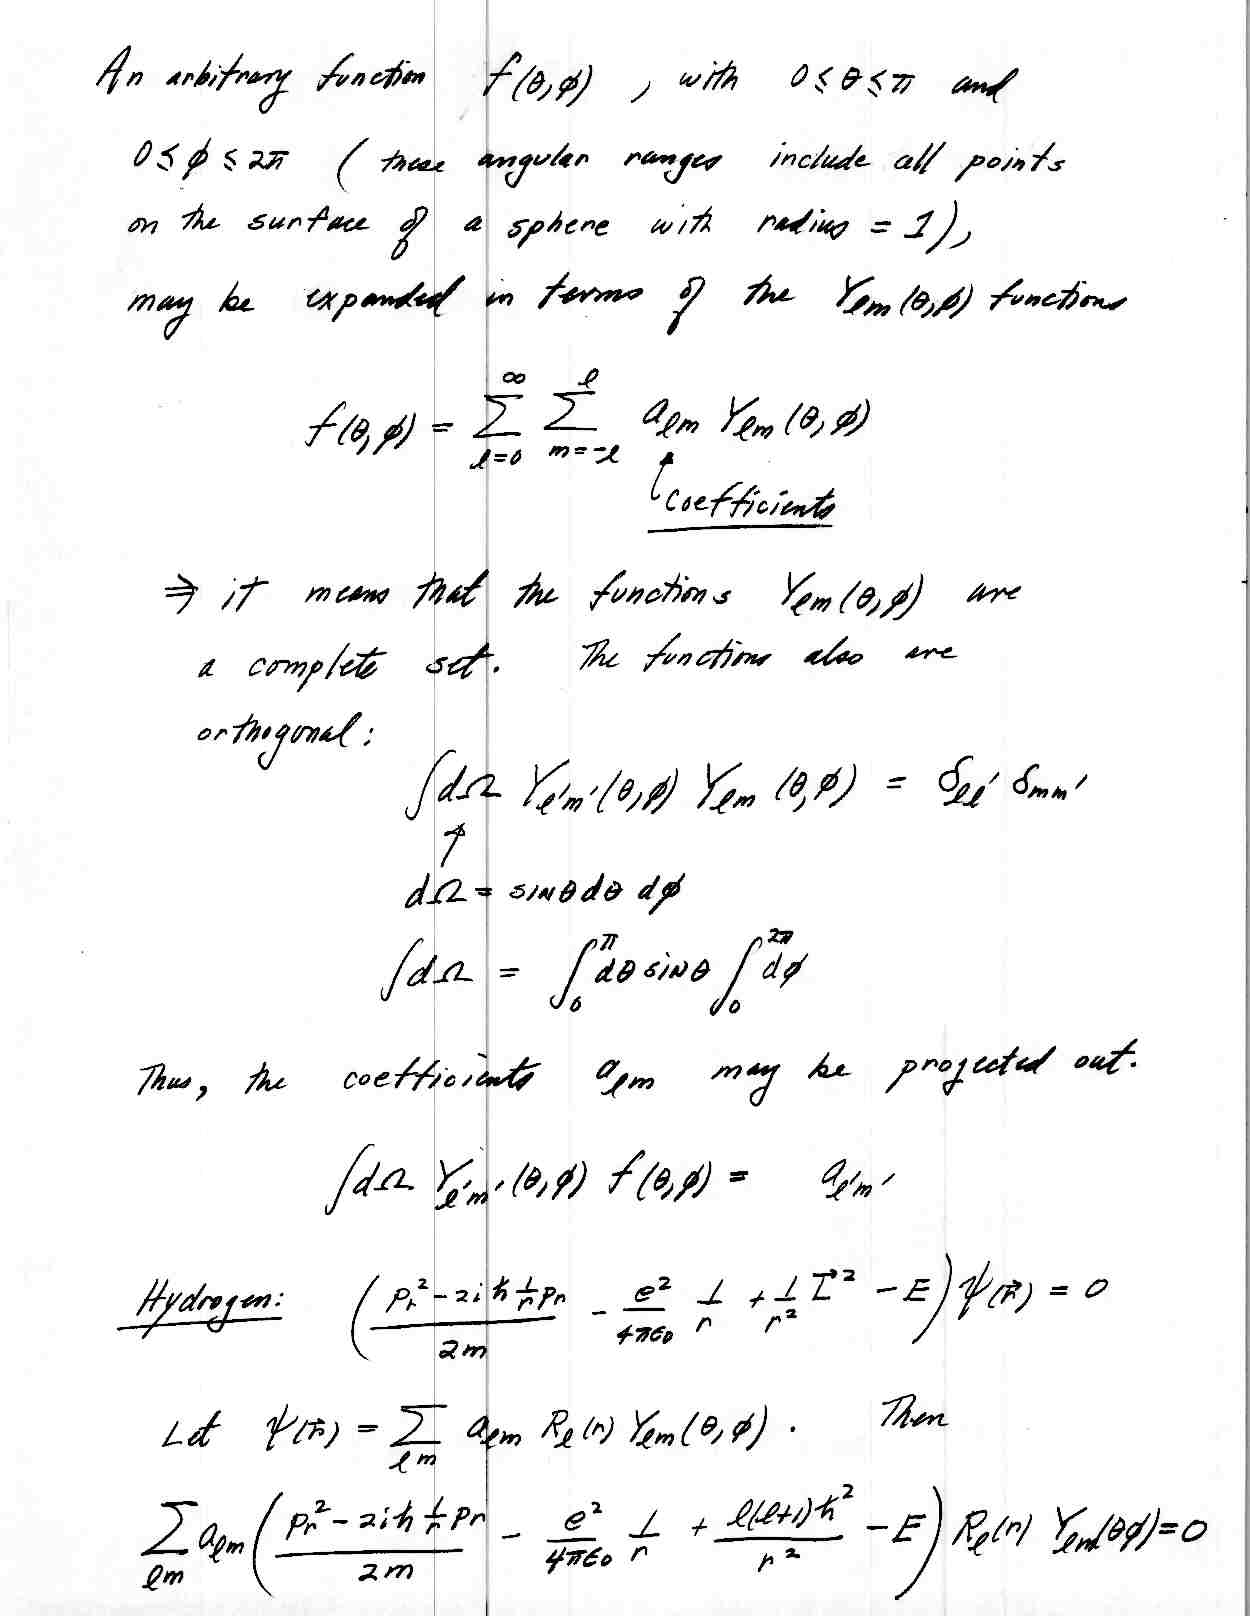 An arbitrary function f(θ,φ) , with 0≤θ≤π and
0≤φ≤2π ( these angular ranges include all points
on the surface of a sphere with radius = 1),
may be expanded in terms of the Yℓm(θ,φ) functions
f(θ,φ) = ∑_{ℓ=0}^{∞} ∑_{m=-ℓ}^{ℓ} aℓm Yℓm(θ,φ)
coefficients
⇒ it means that the functions Yℓm(θ,φ) are
a complete set. The functions also are
orthogonal:
∫dΩ Yℓ'm'(θ,φ) Yℓm(θ,φ) = δℓℓ' δmm'
↑
dΩ = sinθdθ dφ
∫dΩ = ∫_0^π dθ sinθ ∫_0^{2π} dφ
Thus, the coefficients aℓm may be projected out.
∫dΩ Yℓ'm'(θ,φ) f(θ,φ) = aℓ'm'
Hydrogen: ((pr² - 2iħ 1/r pr)/2m - e²/4πε₀ 1/r + 1/r² L⃗² - E) ψ(r⃗) = 0
Let ψ(r⃗) = ∑_{ℓm} aℓm Rℓ(r) Yℓm(θ,φ) . Then
∑_{ℓm} aℓm ((pr² - 2iħ 1/r pr)/2m - e²/4πε₀ 1/r + ℓ(ℓ+1)ħ²/r² - E) Rℓ(r) Yℓm(θφ)=0